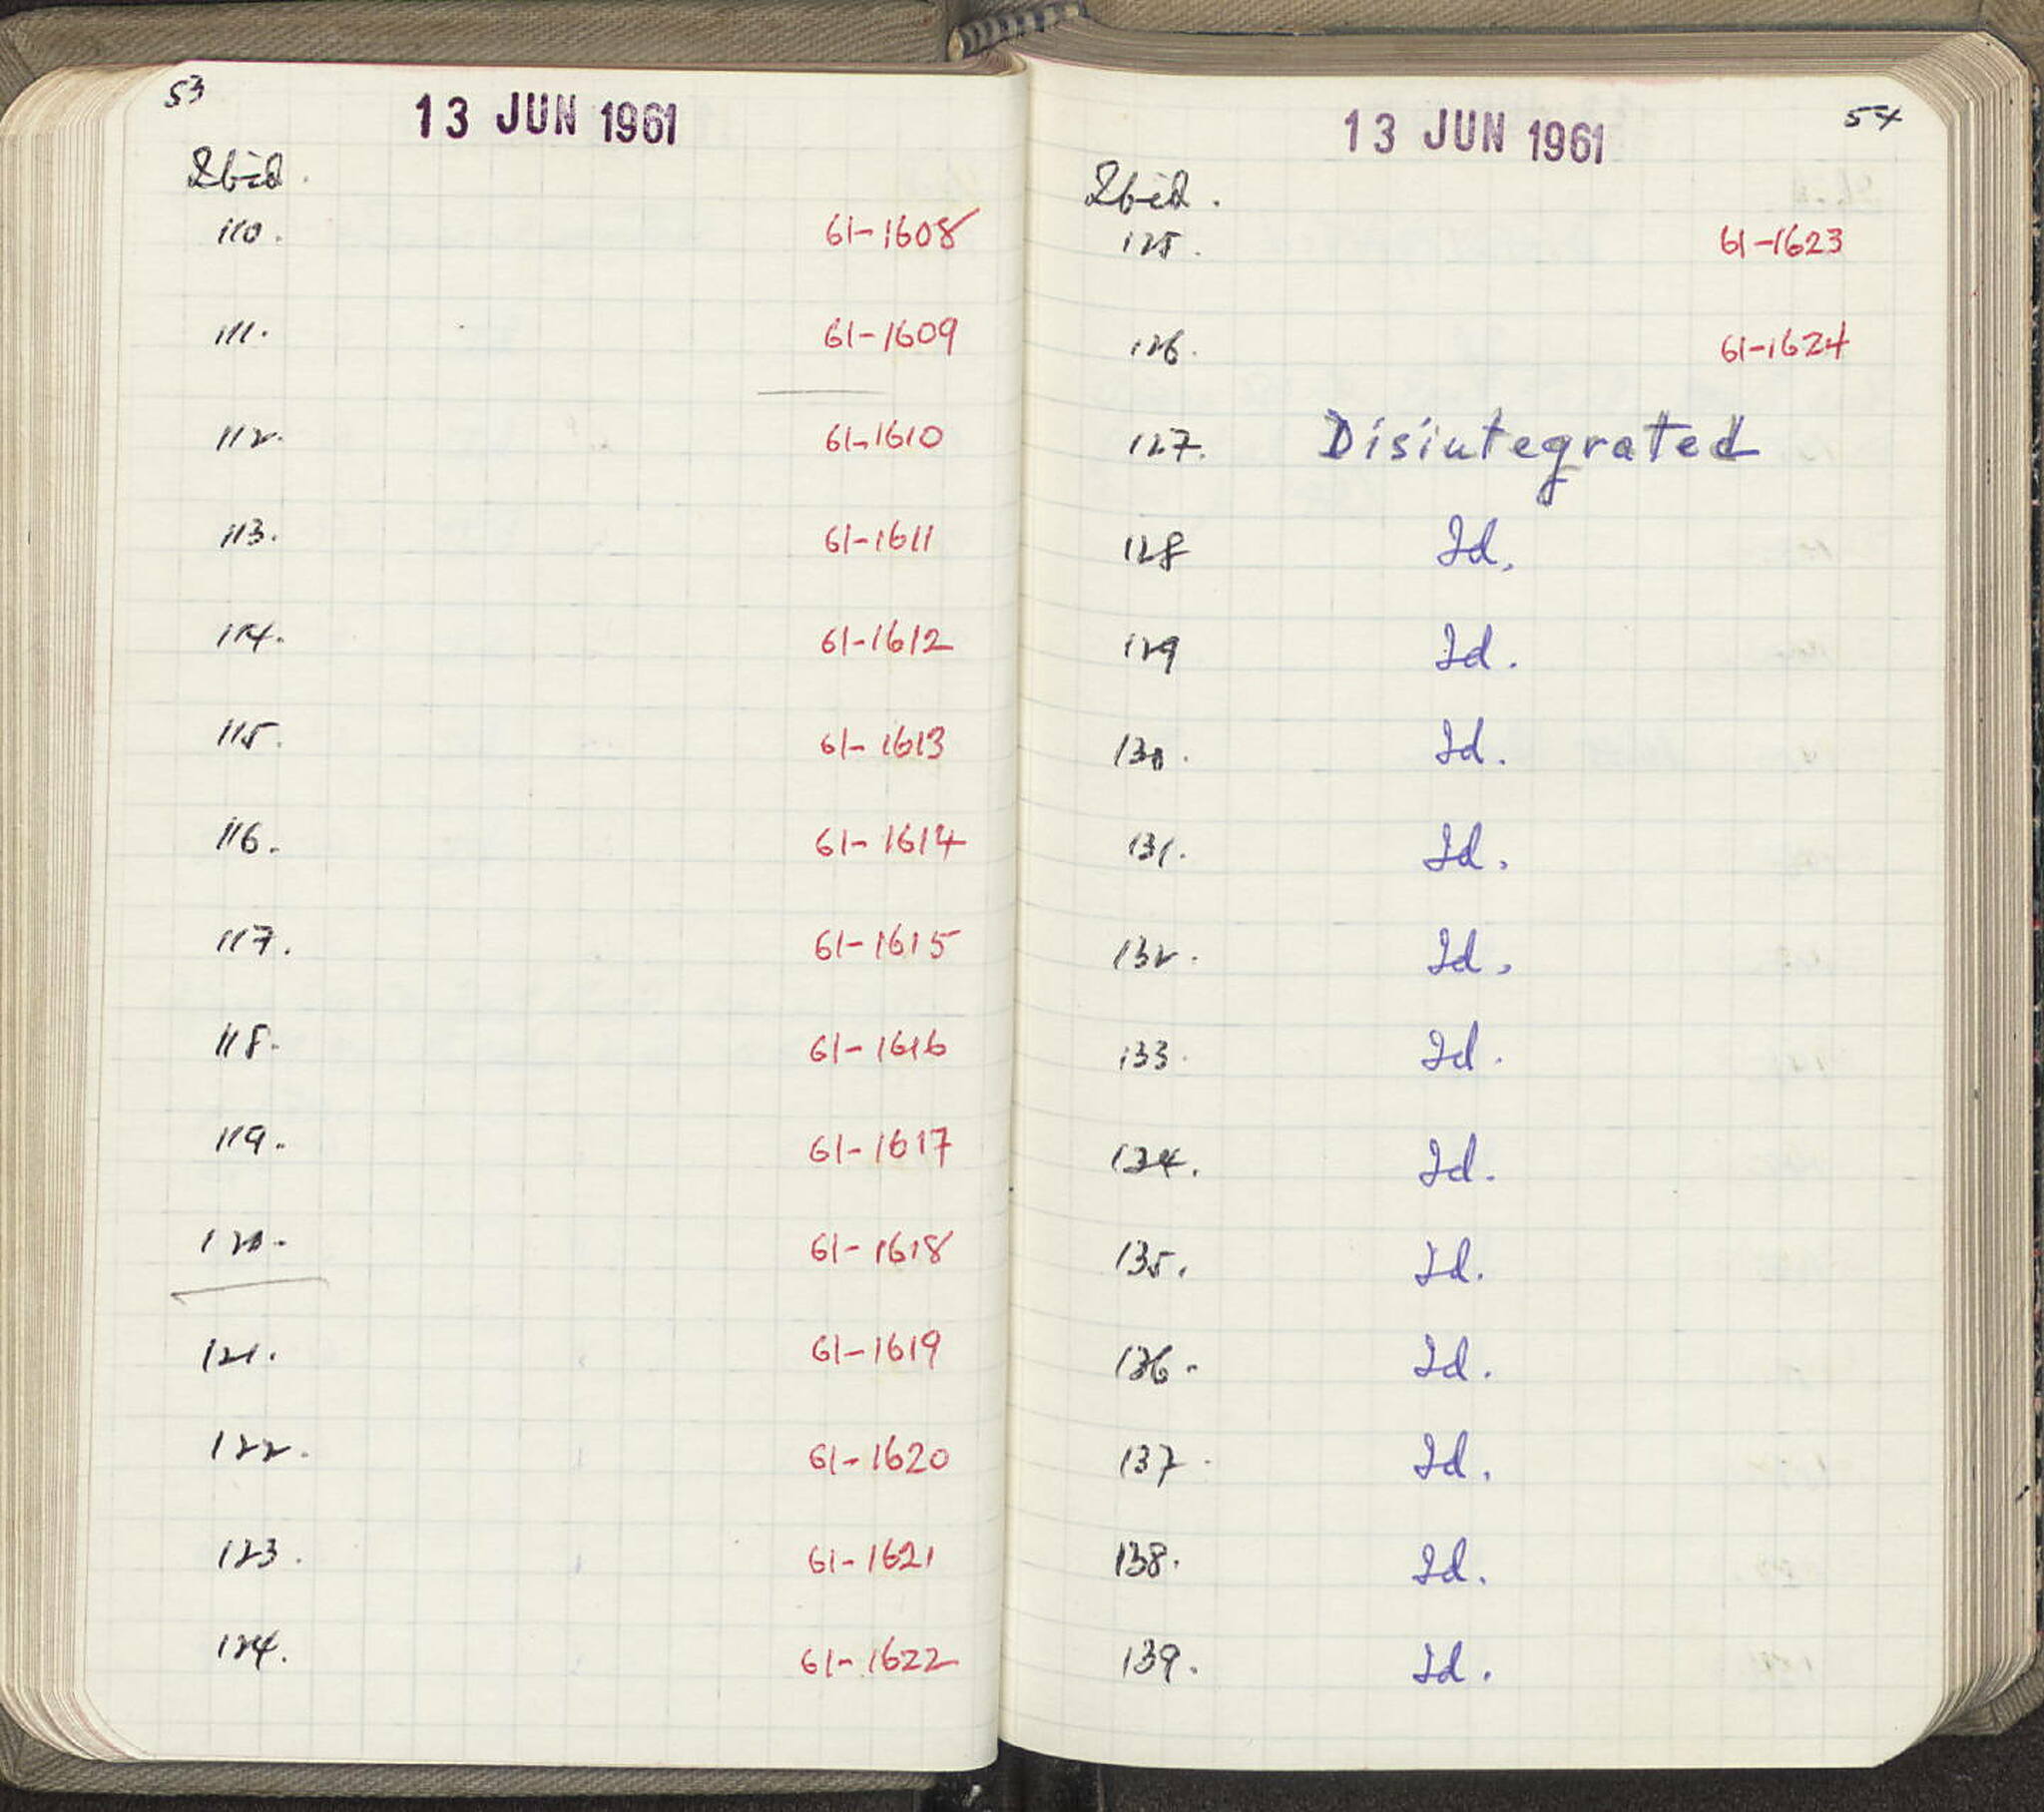 53
13 JUN 1961
Ibid.
110. 61-1608
111. 61-1609
112. 61-1610
113. 61-1611
114. 61-1612
115. 61-1613
116. 61-1614
117. 61-1615
118. 61-1616
119. 61-1617
120. 61-1618
121. 61-1619
122. 61-1620
123. 61-1621
124. 61-1622
54
13 JUN 1961
Ibid.
125. 61-1623
126. 61-1624
127. Disintegrated
128 Id.
129 Id.
130. Id.
131. Id.
132. Id.
133. Id.
134. Id.
135. Id.
136. Id.
137. Id.
138. Id.
139. Id.